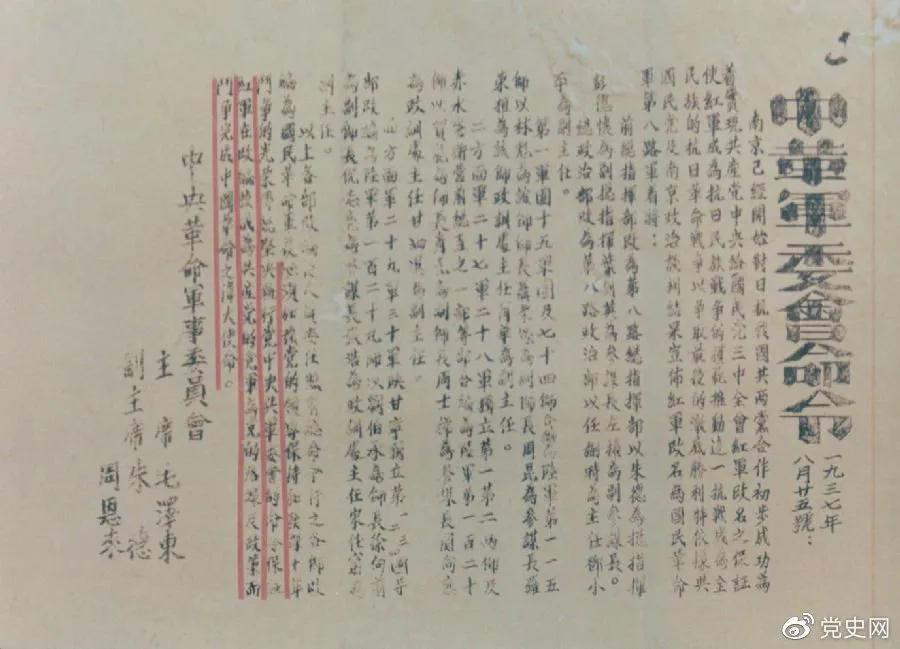 中革軍委會命令
一九三七年
八月廿五號：
南京已經開始對日抗戰國共兩黨合作初步成功為
着實現共產党中央給國民党三中全會紅軍改名之保証
使紅軍成為抗日民族戰争的模範推動這一抗戰成為全
民族的抗日革命戰争以争取最後的澈底勝利特依據與
國民党及南京政治談判結果宣佈紅軍改名為國民革命
軍第八路軍着將：
前總指揮部改為第八路總指揮部以朱德為總指揮
彭德懷為副總指揮葉劍英為參謀長左權為副參謀長。
總政治部改為第八路政治部以任弼時為主任鄧小
平為副主任。
第一軍團十五軍團及七十四師合編為陸軍第一一五
師以林彪為該師師長聶榮臻為副師長周昆為參謀長羅
榮桓為該師政訓處主任蕭華為副主任。
二方面軍二十七軍二十八軍獨立第一第二兩師及
赤水警衛營前總直之一部等部合編為陸軍第一百二十
師以賀龍為師長蕭克為副師長周士第為參謀長關向應
為政訓處主任甘泗淇為副主任。
四方面軍二十九軍三十軍陝甘寧獨立第一二三四等
部改編為陸軍第一百二十九師以劉伯承為師長徐向前
為副師長倪志亮為參謀長張浩為政訓處主任宋任窮為
副主任。
以上各部改編後人員委任照前總命令行之各部改
編為國民革命軍後必須加強党的領導保持和發揮十年
鬥争的光榮傳統堅決執行党中央與軍委會的命令保証
紅軍在改編後成為共產党的党軍為党的路線及政策而
鬥争完成中國革命之偉大使命。
中央革命軍事委員會
主席毛澤東
副主席朱德
周恩來
党史网